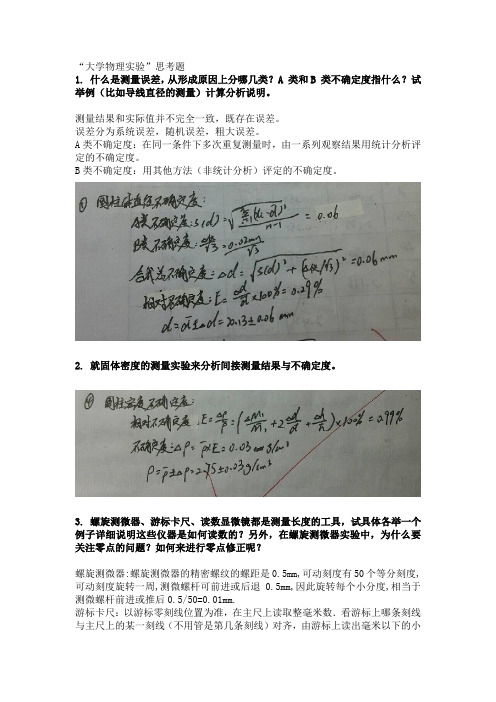 “大学物理实验”思考题
1. 什么是测量误差，从形成原因上分哪几类？A 类和B 类不确定度指什么？试
举例（比如导线直径的测量）计算分析说明。
测量结果和实际值并不完全一致，既存在误差。
误差分为系统误差，随机误差，粗大误差。
A类不确定度：在同一条件下多次重复测量时，由一系列观察结果用统计分析评
定的不确定度。
B类不确定度：用其他方法（非统计分析）评定的不确定度。
① 圆柱体直径不确定度：
A类不确定度：S(d)=√(Σ(di-d̄)²/(n-1)) = 0.06
B类不确定度：Δ仪/√3 = 0.02mm/√3
合成总不确定度：Δd=√(S(d)²+(Δ仪/√3)²)=0.06mm
相对不确定度：E=Δd/d̄×100%=0.29%
d=d̄±Δd=20.13±0.06 mm
2. 就固体密度的测量实验来分析间接测量结果与不确定度。
④ 圆柱密度不确定度：
相对不确定度：E=Δρ/ρ̄=(Δm₁/m₁+2Δd/d̄+Δh/h̄)×100%=0.99%
不确定度：Δρ=ρ̄×E=0.03 g/cm³
ρ=ρ̄±Δρ=2.75±0.03g/cm³
3. 螺旋测微器、游标卡尺、读数显微镜都是测量长度的工具，试具体各举一个
例子详细说明这些仪器是如何读数的？另外，在螺旋测微器实验中，为什么要
关注零点的问题？如何来进行零点修正呢？
螺旋测微器:螺旋测微器的精密螺纹的螺距是0.5mm,可动刻度有50个等分刻度,
可动刻度旋转一周,测微螺杆可前进或后退 0.5mm,因此旋转每个小分度,相当于
测微螺杆前进或推后0.5/50=0.01mm.
游标卡尺：以游标零刻线位置为准，在主尺上读取整毫米数．看游标上哪条刻线
与主尺上的某一刻线（不用管是第几条刻线）对齐，由游标上读出毫米以下的小